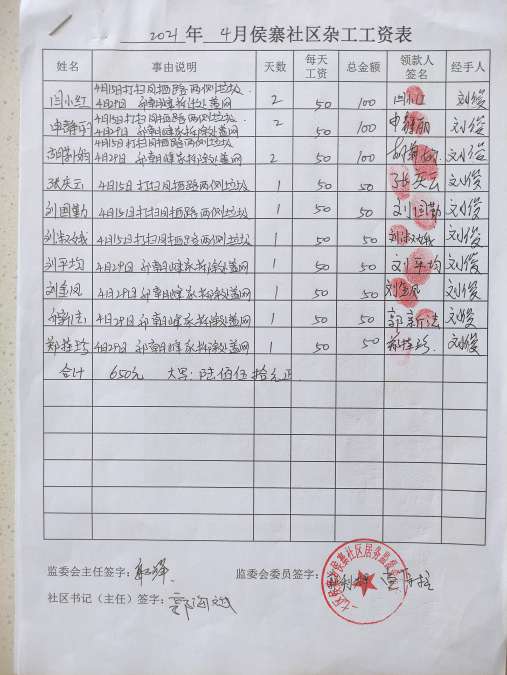 2021年 4月侯寨社区杂工工资表
姓名 事由说明 天数 每天工资 总金额 领款人签名 经手人
闫小红 4月15日打扫凤栖路两侧垃圾 4月29日 郭朝建家拆除盖网 2 50 100 闫小红 刘俊
申静丽 4月15日打扫凤栖路两侧垃圾 4月29日 郭朝建家拆除盖网 2 50 100 申静丽 刘俊
4月15日打扫凤栖路两侧垃圾 4月29日 郭朝建家拆除盖网 2 50 100 刘俊
张庆云 4月15日打扫凤栖路两侧垃圾 1 50 50 张庆云 刘俊
刘国勤 4月15日打扫凤栖路两侧垃圾 1 50 50 刘国勤 刘俊
刘淑娥 4月15日打扫凤栖路两侧垃圾 1 50 50 刘淑娥 刘俊
刘平均 4月29日 郭朝建家拆除盖网 1 50 50 刘平均 刘俊
刘金凤 4月29日 郭朝建家拆除盖网 1 50 50 刘金凤 刘俊
郭新法 4月29日 郭朝建家拆除盖网 1 50 50 郭新法 刘俊
郑桂珍 4月29日 郭朝建家拆除盖网 1 50 50 郑桂珍 刘俊
合计 650元 大写:陆佰伍拾元正
监委会主任签字: 监委会委员签字:
社区书记(主任)签字: